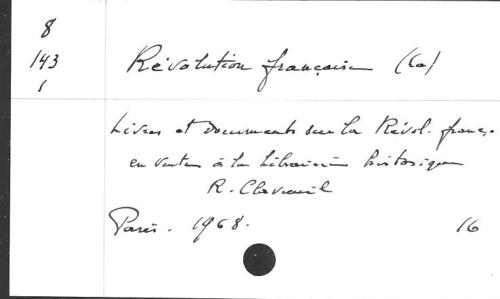 8
143
1
Révolution française (La)
Livres et documents sur la Révol. franç.
en vente à la Librairie historique
R. Clavreuil
Paris. 1968. 16